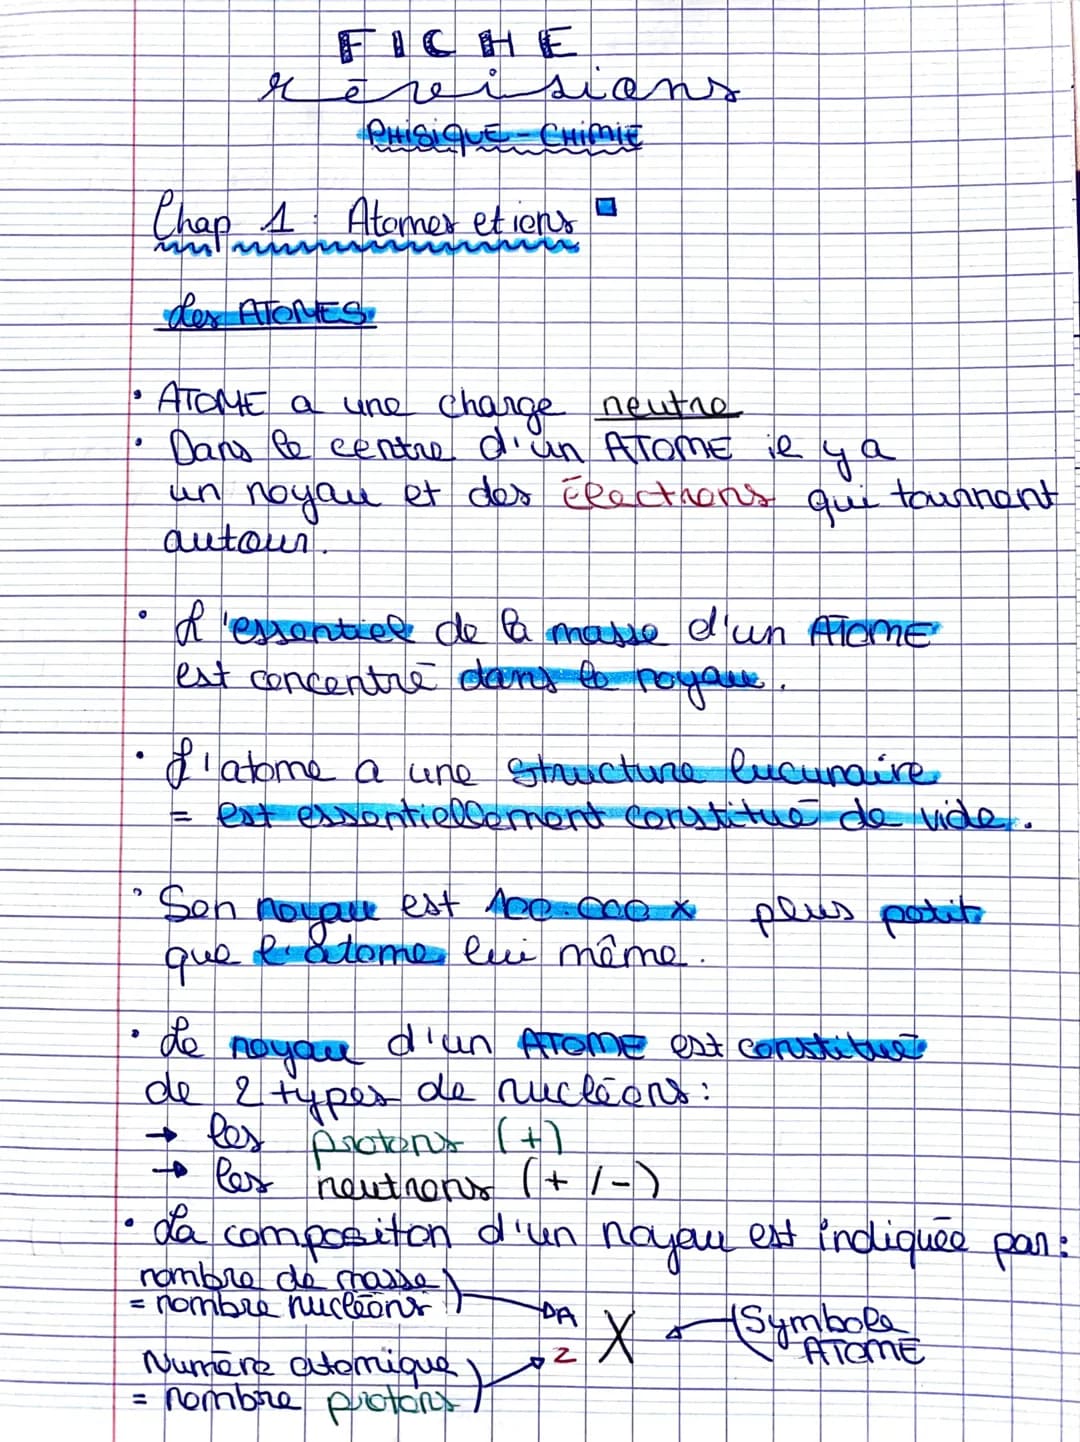 FICHE
révisions
PHISIQUE - CHIMIE
Chap 1 : Atomes et ions
Les ATOMES
• ATOME a une charge neutre
• Dans le centre d'un ATOME il y a
un noyau et des électrons qui tournent
autour.
• L'essentiel de la masse d'un ATOME
est concentré dans le noyau.
• L'atome a une structure lucunaire
= est essentiellement constitué de vide.
• Son noyau est 100.000 x plus petit
que l'atome lui même.
• Le noyau d'un ATOME est constitué
de 2 types de nucléons :
→ les protons (+)
→ les neutrons (+/-)
• La compositon d'un noyau est indiquée par :
nombre de masse
= nombre nucléons
A
X
Symbole
ATOME
Z
Numéro atomique
= nombre protons